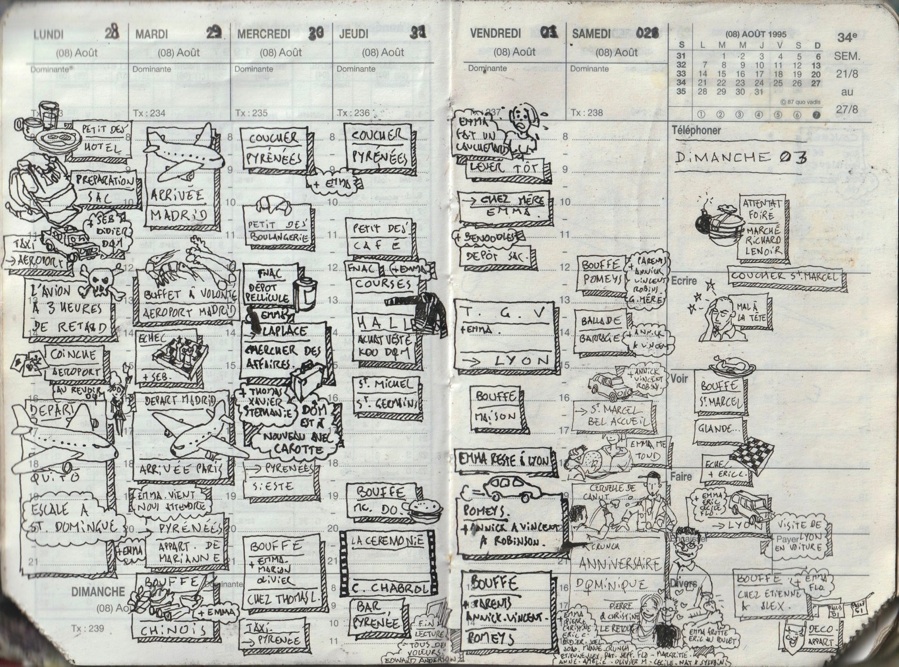 LUNDI 28
(08) Août
Dominante®
PETIT DEJ'
HOTEL
PREPARATION
SAC
+ SEB
DIDIER
DOM
TAXI
→ AEROPORT
L'AVION
A 3 HEURES
DE RETARD
COINCHE
AEROPORT
AU REVOIR
DEPART
QUITO
ESCALE A
ST. DOMINGUE
DIMANCHE
(08) Ao
Tx : 239
MARDI 29
(08) Août
Dominante
Tx : 234
ARRIVÉE
MADRID
BUFFET A VOLONTÉ
AEROPORT MADRID
ECHEC
+ SEB.
DEPART MADRID
ARRIVÉE PARIS
EMMA VIENT
NOUS ATTENDRE
PYRÉNÉES
APPART. DE
MARIANNE
+ EMMA
BOUFFE
+ EMMA
CHINOIS
MERCREDI 30
(08) Août
Dominante
Tx : 235
COUCHER
PYRÉNÉES
+ EMMA
PETIT DEJ'
BOULANGERIE
FNAC
DEPOT
PELLICULE
EMMA
LAPLACE
CHERCHER DES
AFFAIRES.
+ THOMAS
XAVIER
STEPHANIE
DOM
EST À
NOUVEAU AVEC
CAROTTE
→ PYRENEES
SIESTE
BOUFFE
+ EMMA
MARION
OLIVIER
CHEZ THOMAS L.
TAXI
→ PYRENEE
JEUDI 31
(08) Août
Dominante
Tx : 236
COUCHER
PYRÉNÉES
PETIT DEJ'
CAFÉ
FNAC + EMMA
COURSES
HALL
ACHAT VESTE
KOO DOM
ST. MICHEL
ST. GERMAIN
BOUFFE
MC. DO
LA CEREMONIE
C. CHABROL
BAR
PYRÉNÉES
FIN
LECTURE
TOUS DES
VOLEURS
EDWARD ANDERSON
VENDREDI 01
(08) Août
Dominante
237
EMMA
FAIT UN
CAUCHEMAR
LEVER TÔT
→ CHEZ MÈRE
EMMA.
+ BENOODLES
DEPÔT SAC.
T. G. V
+ EMMA.
→ LYON
BOUFFE
MAISON
EMMA RESTE À LYON
POMEYS.
+ ANNICK A VINCENT
& ROBINSON.
BOUFFE
+ PARENTS
ANNICK. VINCENT.
ROMEYS
SAMEDI 02
(08) Août
Dominante
Tx : 238
BOUFFE
POMEYS
+ PARENTS
ANNICK
VINCENT
ROBINS
G. MÈRE
BALLADE
BARRAGE
+ ANNICK
& VINCENT
+ ANNICK
VINCENT
ROBIN
→ ST. MARCEL
BEL ACCUEIL
EMMA ME
TOND
CERVELLE DE
CANUT.
CRUNCA
ANNIVERSAIRE
DOMINIQUE
PIERRE
& CHRISTINE
LE RETOUR
(08) AOÛT 1995
S L M M J V S D
31 1 2 3 4 5 6
32 7 8 9 10 11 12 13
33 14 15 16 17 18 19 20
34 21 22 23 24 25 26 27
35 28 29 30 31
34e
SEM.
21/8
au
27/8
Téléphoner
DIMANCHE 03
ATTENTAT
FOIRE
MARCHÉ
RICHARD
LENOIR
Ecrire
COUCHER ST. MARCEL
MAL À
LA TÊTE
Voir
BOUFFE
ST. MARCEL
GLANDE...
Faire
ECHEC
+ ERIC C.
EMMA
ERIC
CECILE
→ LYON
VISITE DE
LYON
EN VOITURE
Payer
Divers
BOUFFE
CHEZ ETIENNE
& ALEX.
+ EMMA
FLO
DECO-
APPART